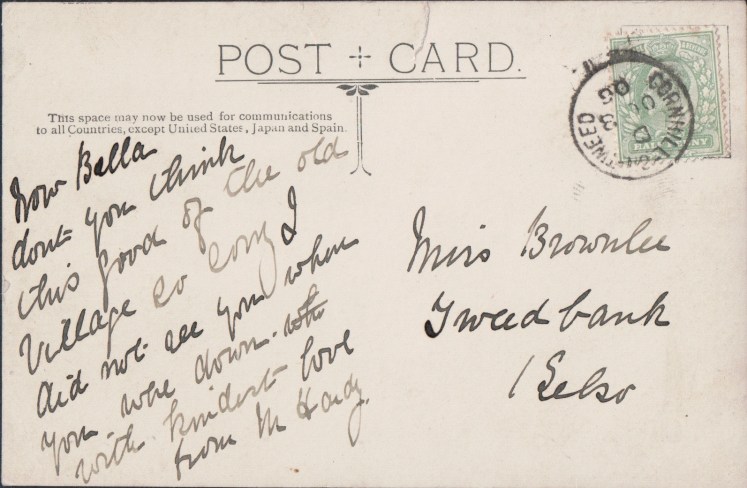 POST CARD.
This space may now be used for communications
to all Countries, except United States, Japan and Spain.
Now Bella
dont you think
this good of the old
Village so sorry I
did not see you when
you were down.
with kindest love
from M Hardy.
Miss Brownlee
Tweedbank
Kelso
CORNHILL-ON-TWEED
HALFPENNY